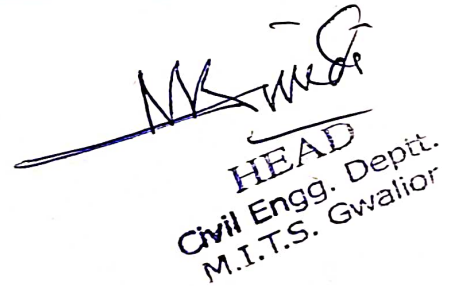 HEAD
Civil Engg. Deptt.
M.I.T.S. Gwalior